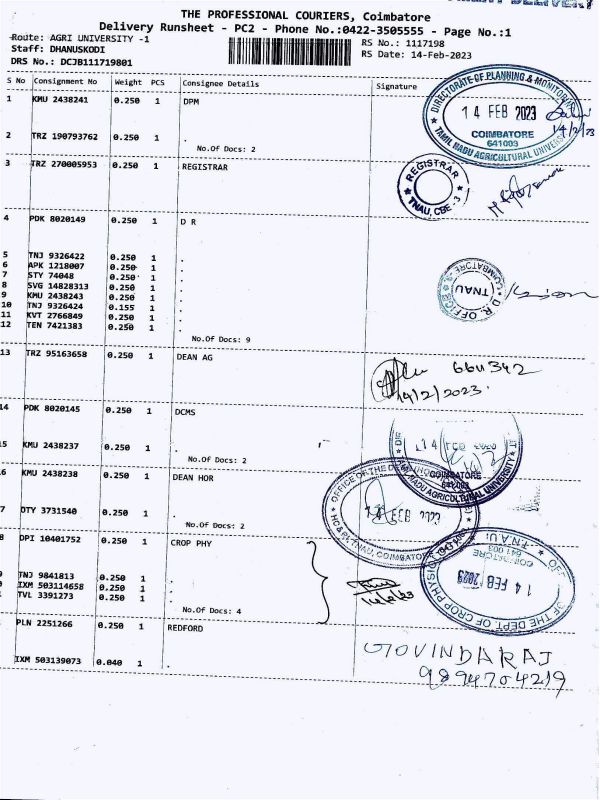 THE PROFESSIONAL COURIERS, Coimbatore
Delivery Runsheet - PC2 - Phone No.:0422-3505555 - Page No.:1
Route: AGRI UNIVERSITY -1
RS No.: 1117198
Staff: DHANUSKODI
RS Date: 14-Feb-2023
DRS No.: DCJB111719801
S No Consignment No Weight PCS Consignee Details Signature
1 KMU 2438241 0.250 1 DPM
2 TRZ 190793762 0.250 1 .
No.Of Docs: 2
DIRECTORATE OF PLANNING & MONITORING
14 FEB 2023
COIMBATORE
641003
TAMIL NADU AGRICULTURAL UNIVERSITY
14/2/23
3 TRZ 270005953 0.250 1 REGISTRAR
REGISTRAR
TNAU, CBE - 3
4 PDK 8020149 0.250 1 D R
5 TNJ 9326422 0.250 1 .
6 APK 1218007 0.250 1 .
7 STY 74048 0.250 1 .
8 SVG 14828313 0.250 1 .
9 KMU 2438243 0.250 1 .
10 TNJ 9326424 0.155 1 .
11 KVT 2766849 0.250 1 .
12 TEN 7421383 0.250 1 .
No.Of Docs: 9
D.R. OFFICE
TNAU
COIMBATORE
13 TRZ 95163658 0.250 1 DEAN AG
6611342
14/2/2023.
14 PDK 8020145 0.250 1 DCMS
15 KMU 2438237 0.250 1 .
No.Of Docs: 2
COIMBATORE
641 003
TAMIL NADU AGRICULTURAL UNIVERSITY
6 KMU 2438238 0.250 1 DEAN HOR
7 DTY 3731540 0.250 1 .
No.Of Docs: 2
OFFICE OF THE DEAN
HC&RI, TNAU, COIMBATORE
8 DPI 10401752 0.250 1 CROP PHY
TNJ 9841813 0.250 1 .
IXM 503114658 0.250 1 .
TVL 3391273 0.250 1 .
No.Of Docs: 4
14 FEB 2023
OF THE DEPT OF CROP PHYSIOLOGY
TNAU
COIMBATORE
641 003
PLN 2251266 0.250 1 REDFORD
IXM 503139073 0.040 1 .
GOVINDARAJ
9894704219